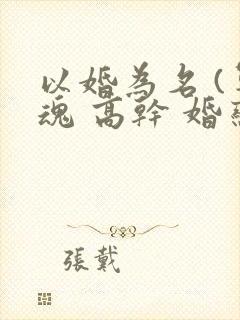 以婚為名（
魂 高幹 婚
張戴